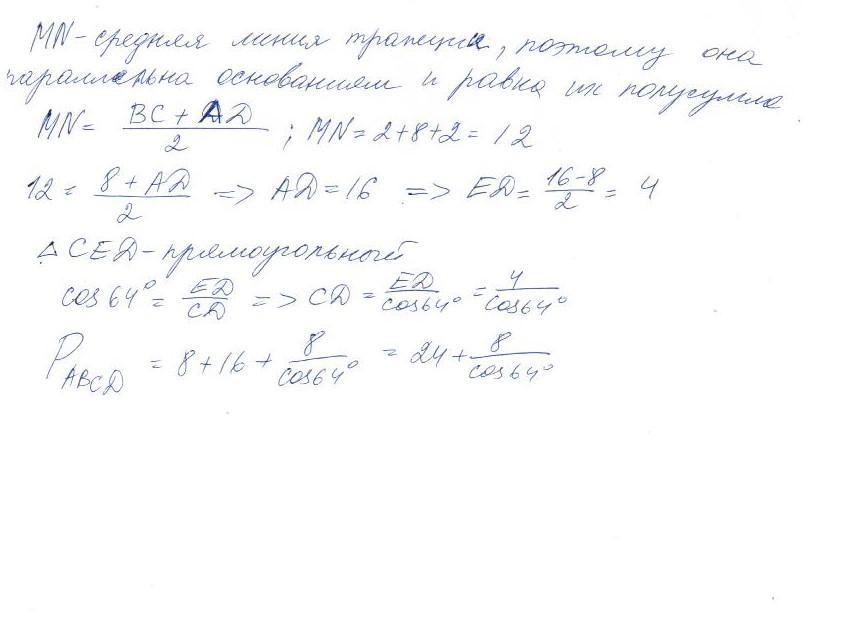 MN - средняя линия трапеции, поэтому она
параллельна основаниям и равна их полусумме
MN = (BC + AD)/2 ; MN = 2+8+2 = 12
12 = (8 + AD)/2 => AD = 16 => ED = (16-8)/2 = 4
△ CED - прямоугольный
cos64° = ED/CD => CD = ED/cos64° = 4/cos64°
P_ABCD = 8+16+ 8/cos64° = 24+ 8/cos64°